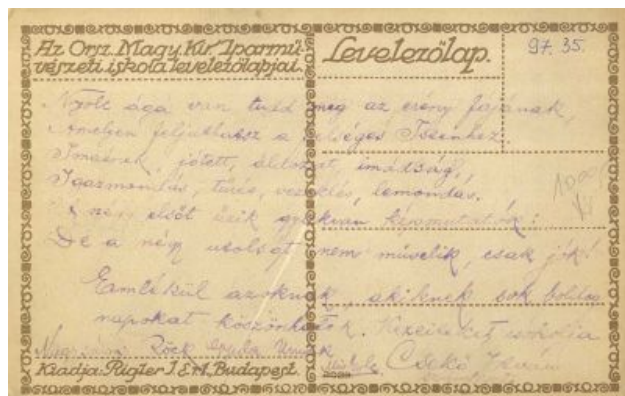 Az Orsz. Magy. Kir. Iparmű-
vészeti iskola levelezőlapjai.
Levelezőlap.
97. 35.
Nyolc ága van tudd meg az erény fájának,
Amelyen feljuthatsz a felséges Istenhez.
jótett, áldozat, imádság,
Igazmondás, tűrés, lemondás.
A négy elsőt űzik gyakran képmutatók:
De a négy utolsót nem művelik, csak jók!
Emlékül azoknak, akiknek sok boldog
napokat köszönhetek. Kezeiket csókolja
Röck Gyula
Csekő István
Kiadja: Rigler J. E. r-t. Budapest.